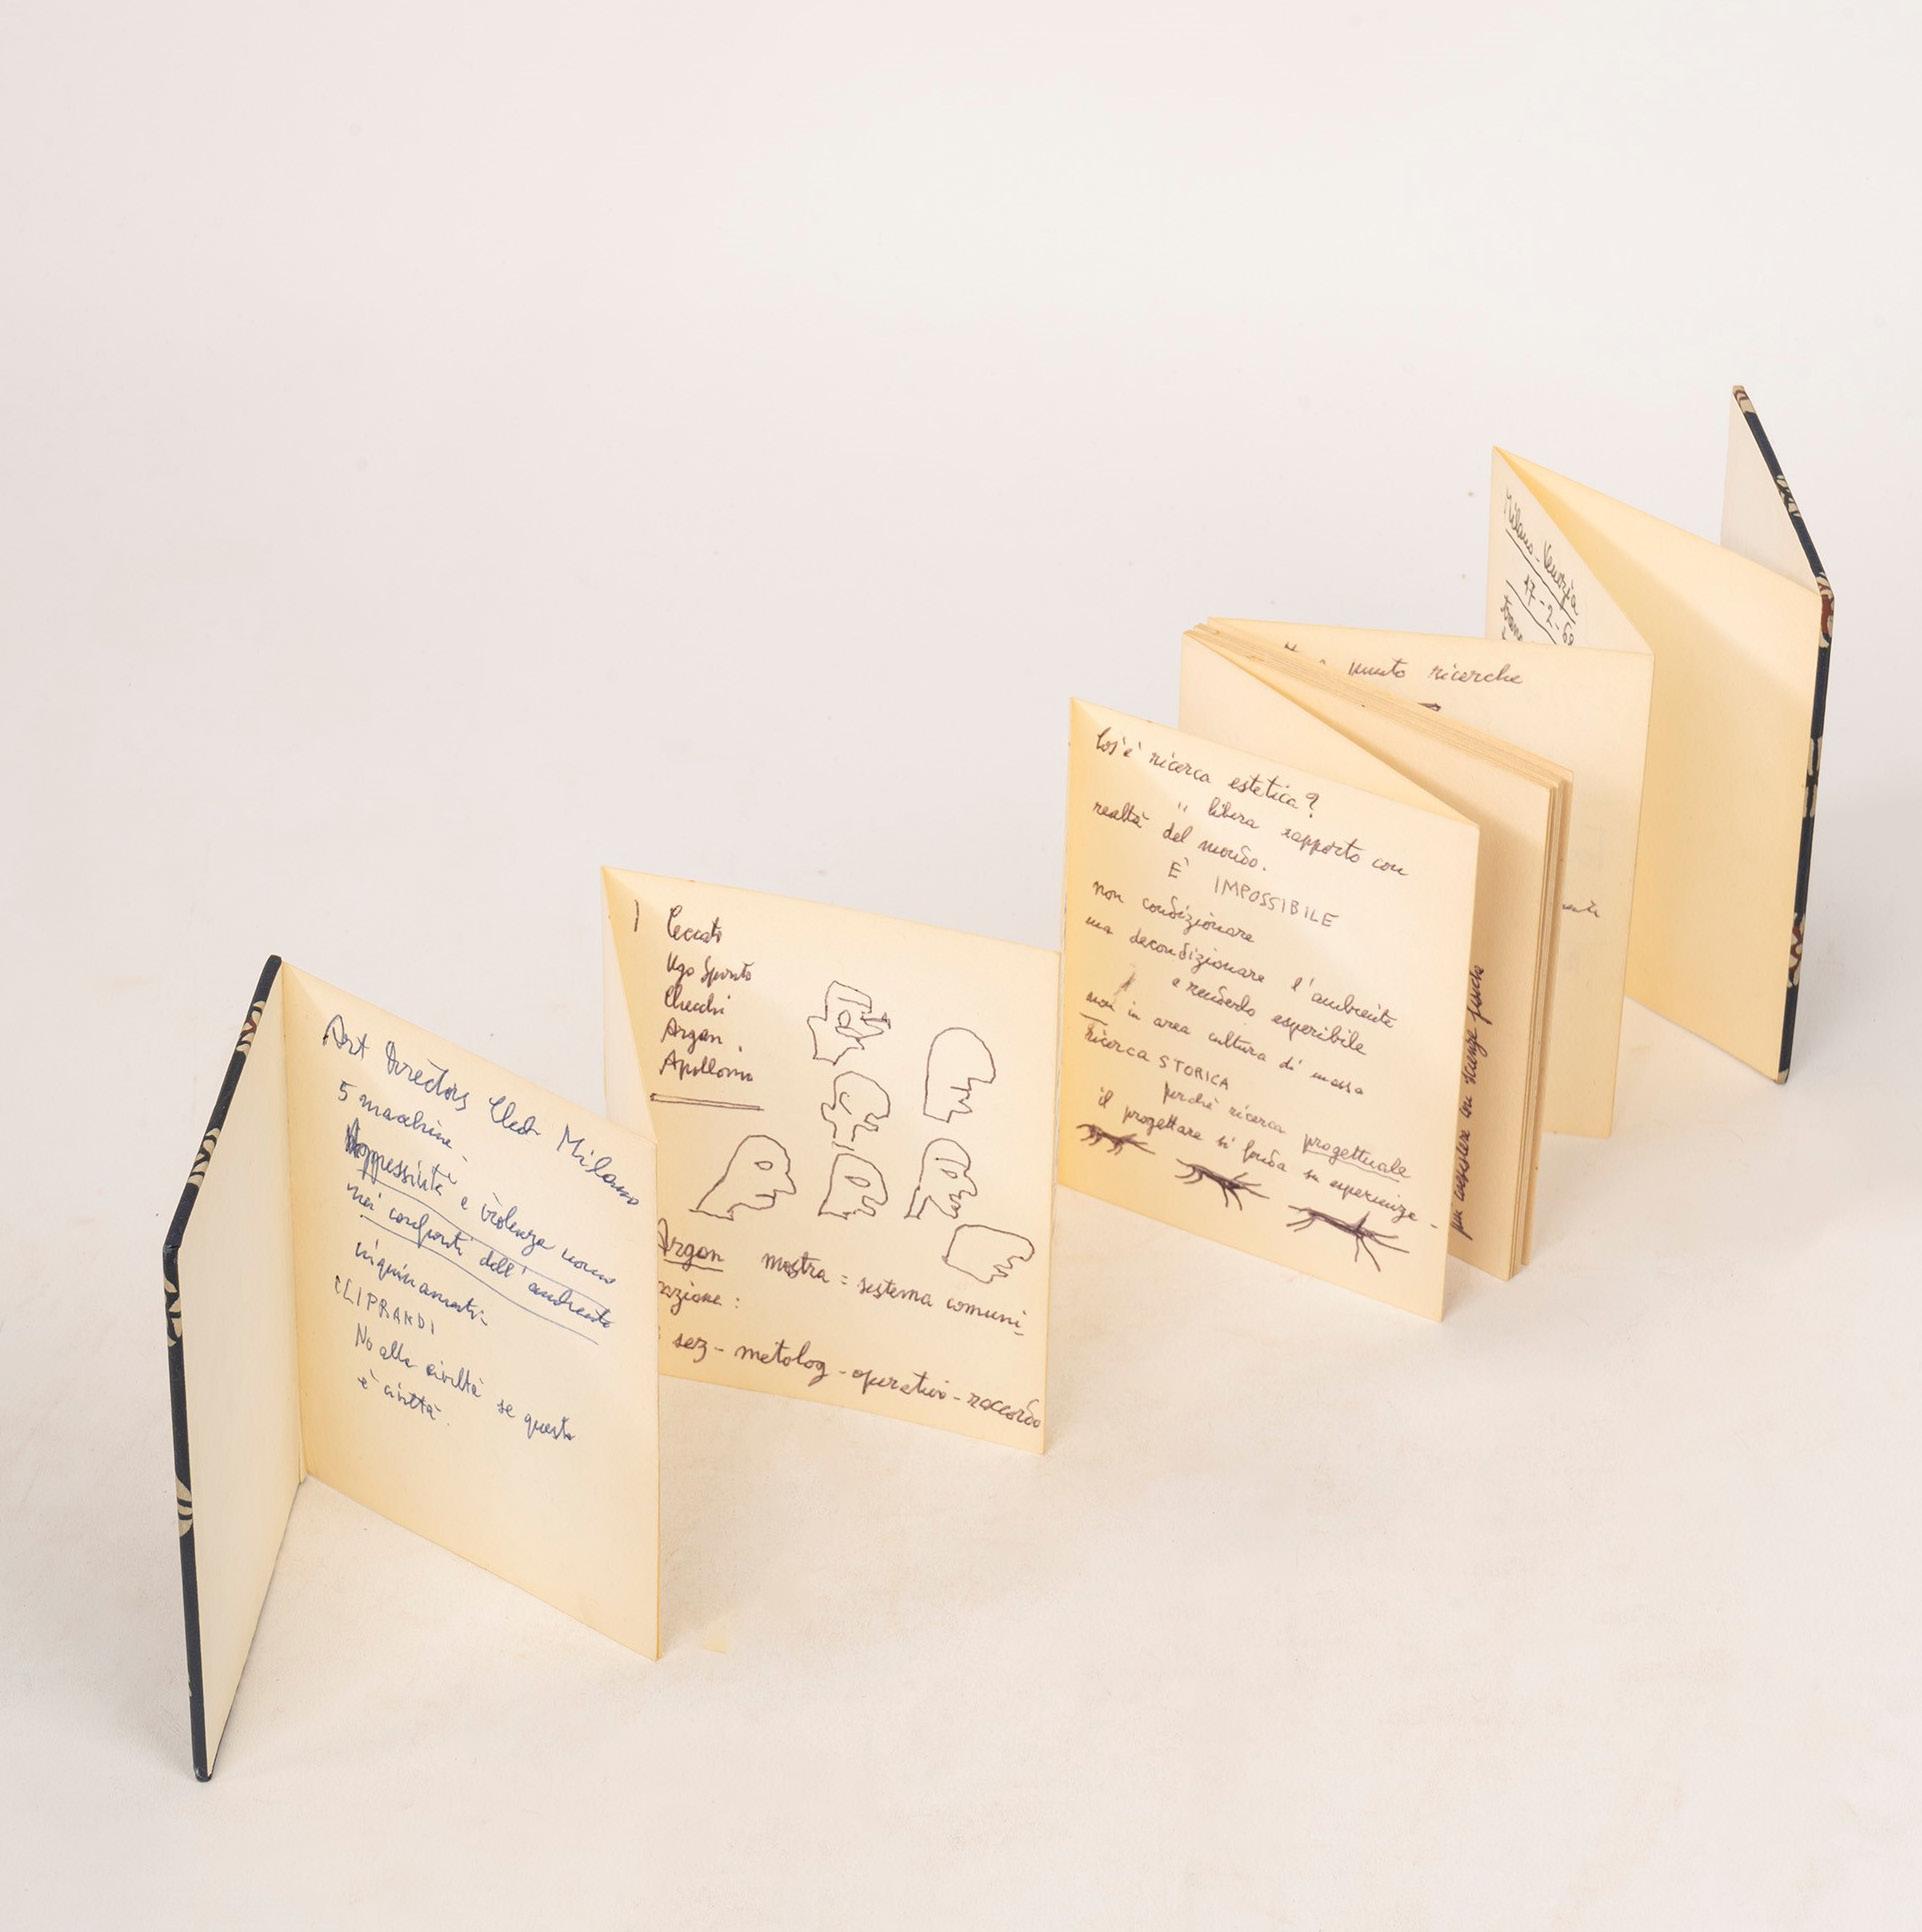 Art Directors Club Milano
5 macchine -
oppressività e violenza uomo
nei confronti dell'ambiente
inquinamenti -
ILIPRANDI
No alla civiltà se questa
è civiltà.
1 Ceccato
Ugo Spirito
Checchi
Argan.
Apollonio
Argan mostra = sistema comuni-
cazione:
sez - metolog - operativo - raccordo
Cos'è ricerca estetica?
" libera rapporto con
realtà del mondo.
È IMPOSSIBILE
non condizionare
ma decondizionare l'ambiente
e renderlo esperibile
non in area cultura di massa
ricerca STORICA
perché ricerca progettuale
il progettare si fonda su esperienze -
può coesistere con scienze fisiche
punto ricerche
Milano - Venezia
17-2-69